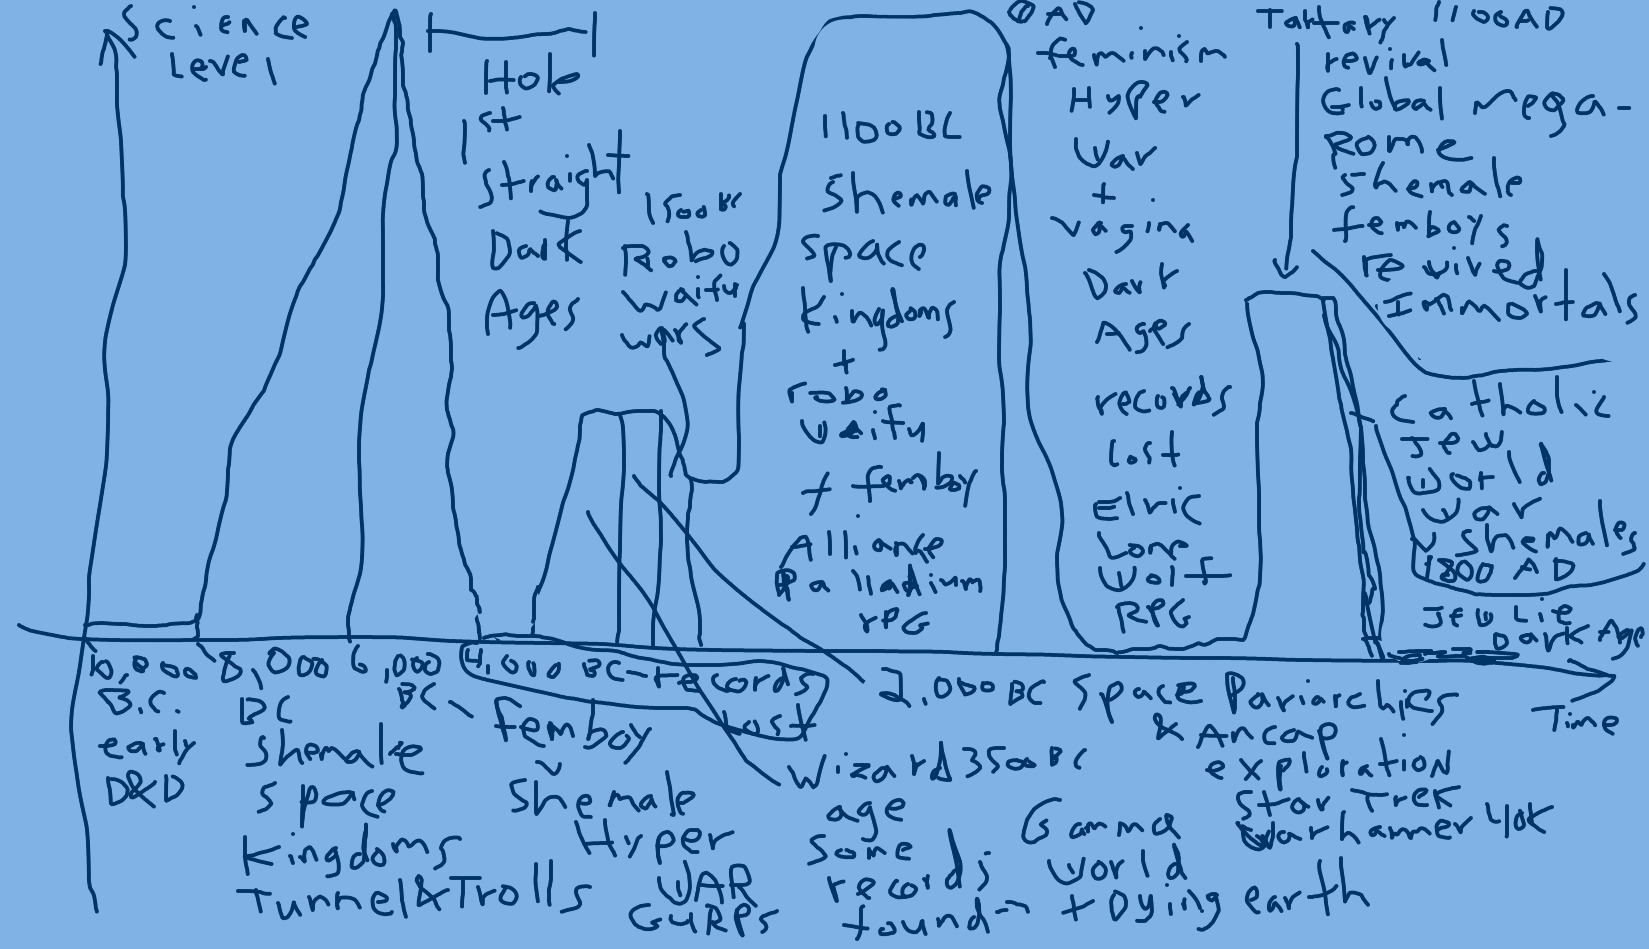 Science
Level
Hole
1st
Straight
Dark
Ages
1500 BC
Robo
waifu
wars
1100 BC
Shemale
Space
Kingdoms
+
robo
waifu
+ femboy
Alliance
Palladium
rPG
0 AD
feminism
Hyper
War
+
vagina
Dark
Ages
records
lost
Elric
Lone
Wolf
RPG
Tartary 1100AD
revival
Global Mega-
Rome
Shemale
femboys
revived
Immortals
Catholic
Jew
World
War
v Shemales
1800 AD
Jew Lie
Dark Age
Time
10,000
B.C.
early
D&D
8,000
BC
Shemale
Space
Kingdoms
Tunnel&Trolls
6,000
BC-
femboy
v
Shemale
Hyper
WAR
GURPS
4,000 BC-records
lost
Wizard 3500BC
age
Some
records
found-
2,000BC Space Pariarchies
& Ancap
exploration
Star Trek
Warhammer 40K
Gamma
World
+ Dying earth